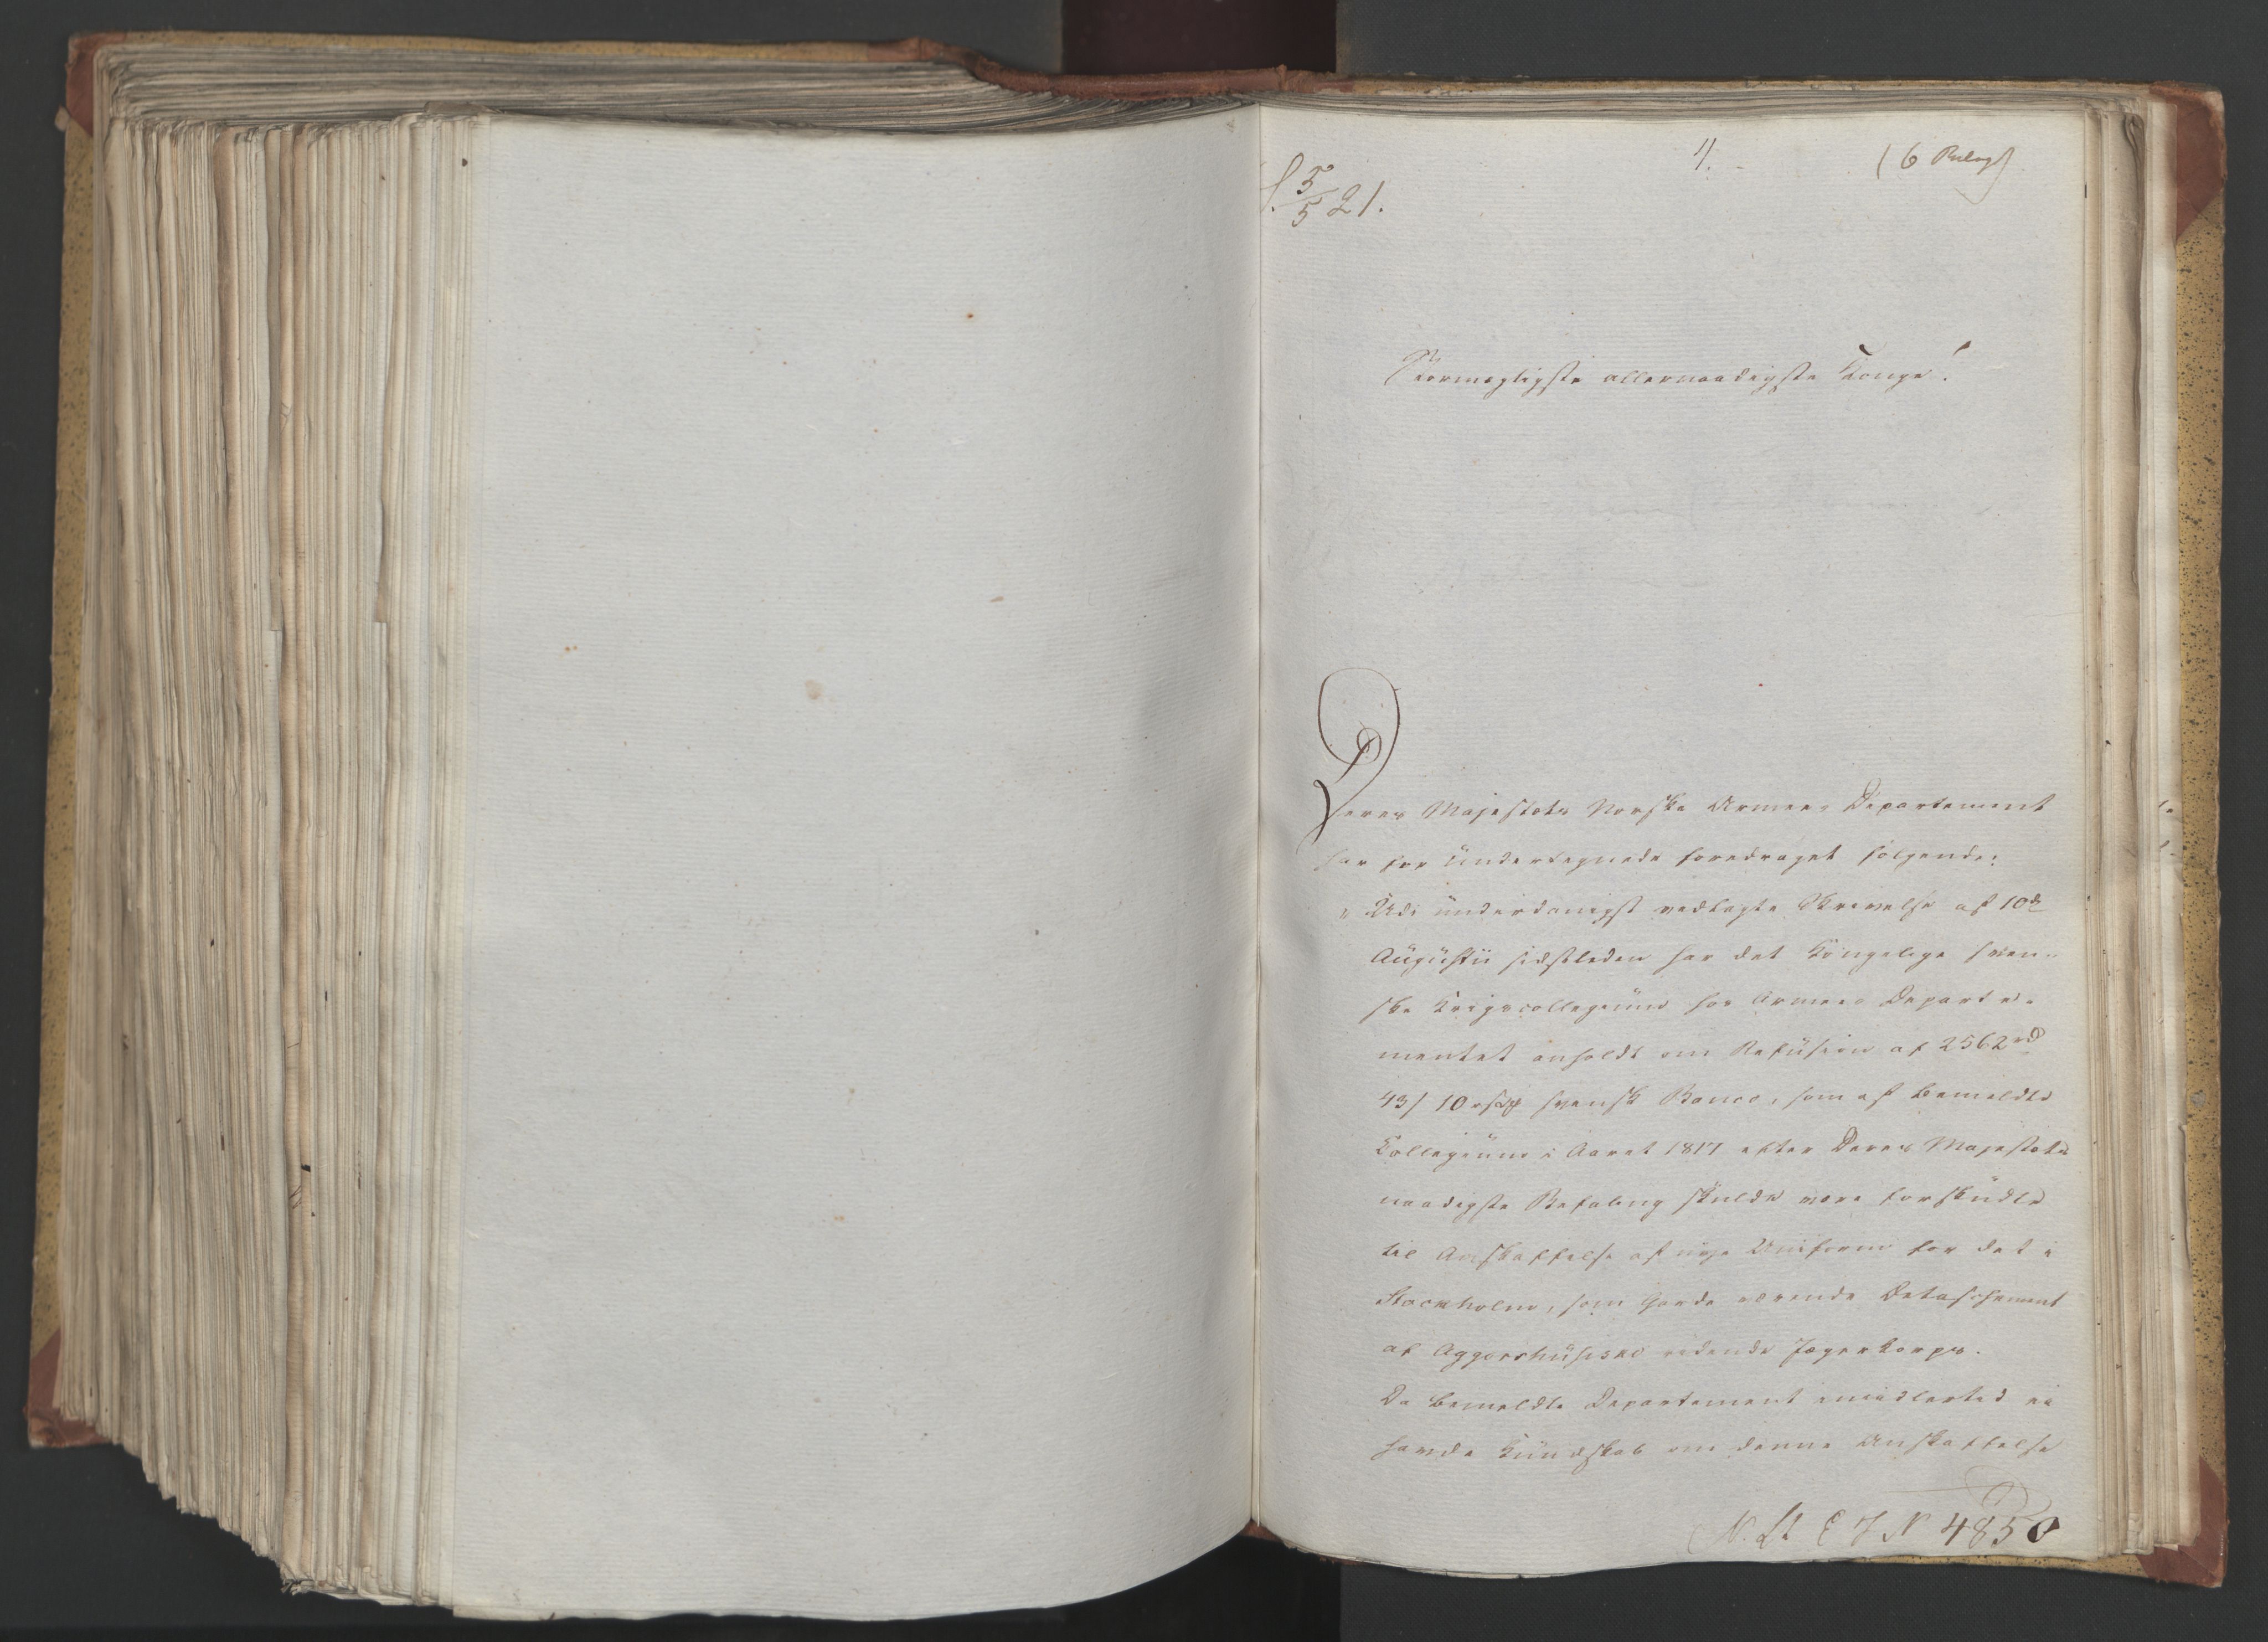 4.
(6 Bilag)
S. 5/5 21.
Stormægtigste allernaadigste Konge!
Deres Majestæts Norske Armee-Departement
har for Undertegnede foredraget følgende:
„Udi underdanigst vedlagte Skrivelse af 10de
Augustii sidstleden har det Kongelige Sven-
ske Krigscollegium hos Armee-Departe-
mentet anholdt om Refusion af 2562rd
43/ 10 svensk Banco, som af bemeldte
Collegium i Aaret 1817 efter Deres Majestæts
naadigste Befaling skulde være forskudte
til Anskaffelse af nye Uniform for det i
Stockholm, som Garde værende Detaschement
af Aggershusiske ridende Jægerkorps.
Da bemeldte Departement imidlertid ei
havde Kundskab om denne Anskaffelse
N. St. E J N 4850